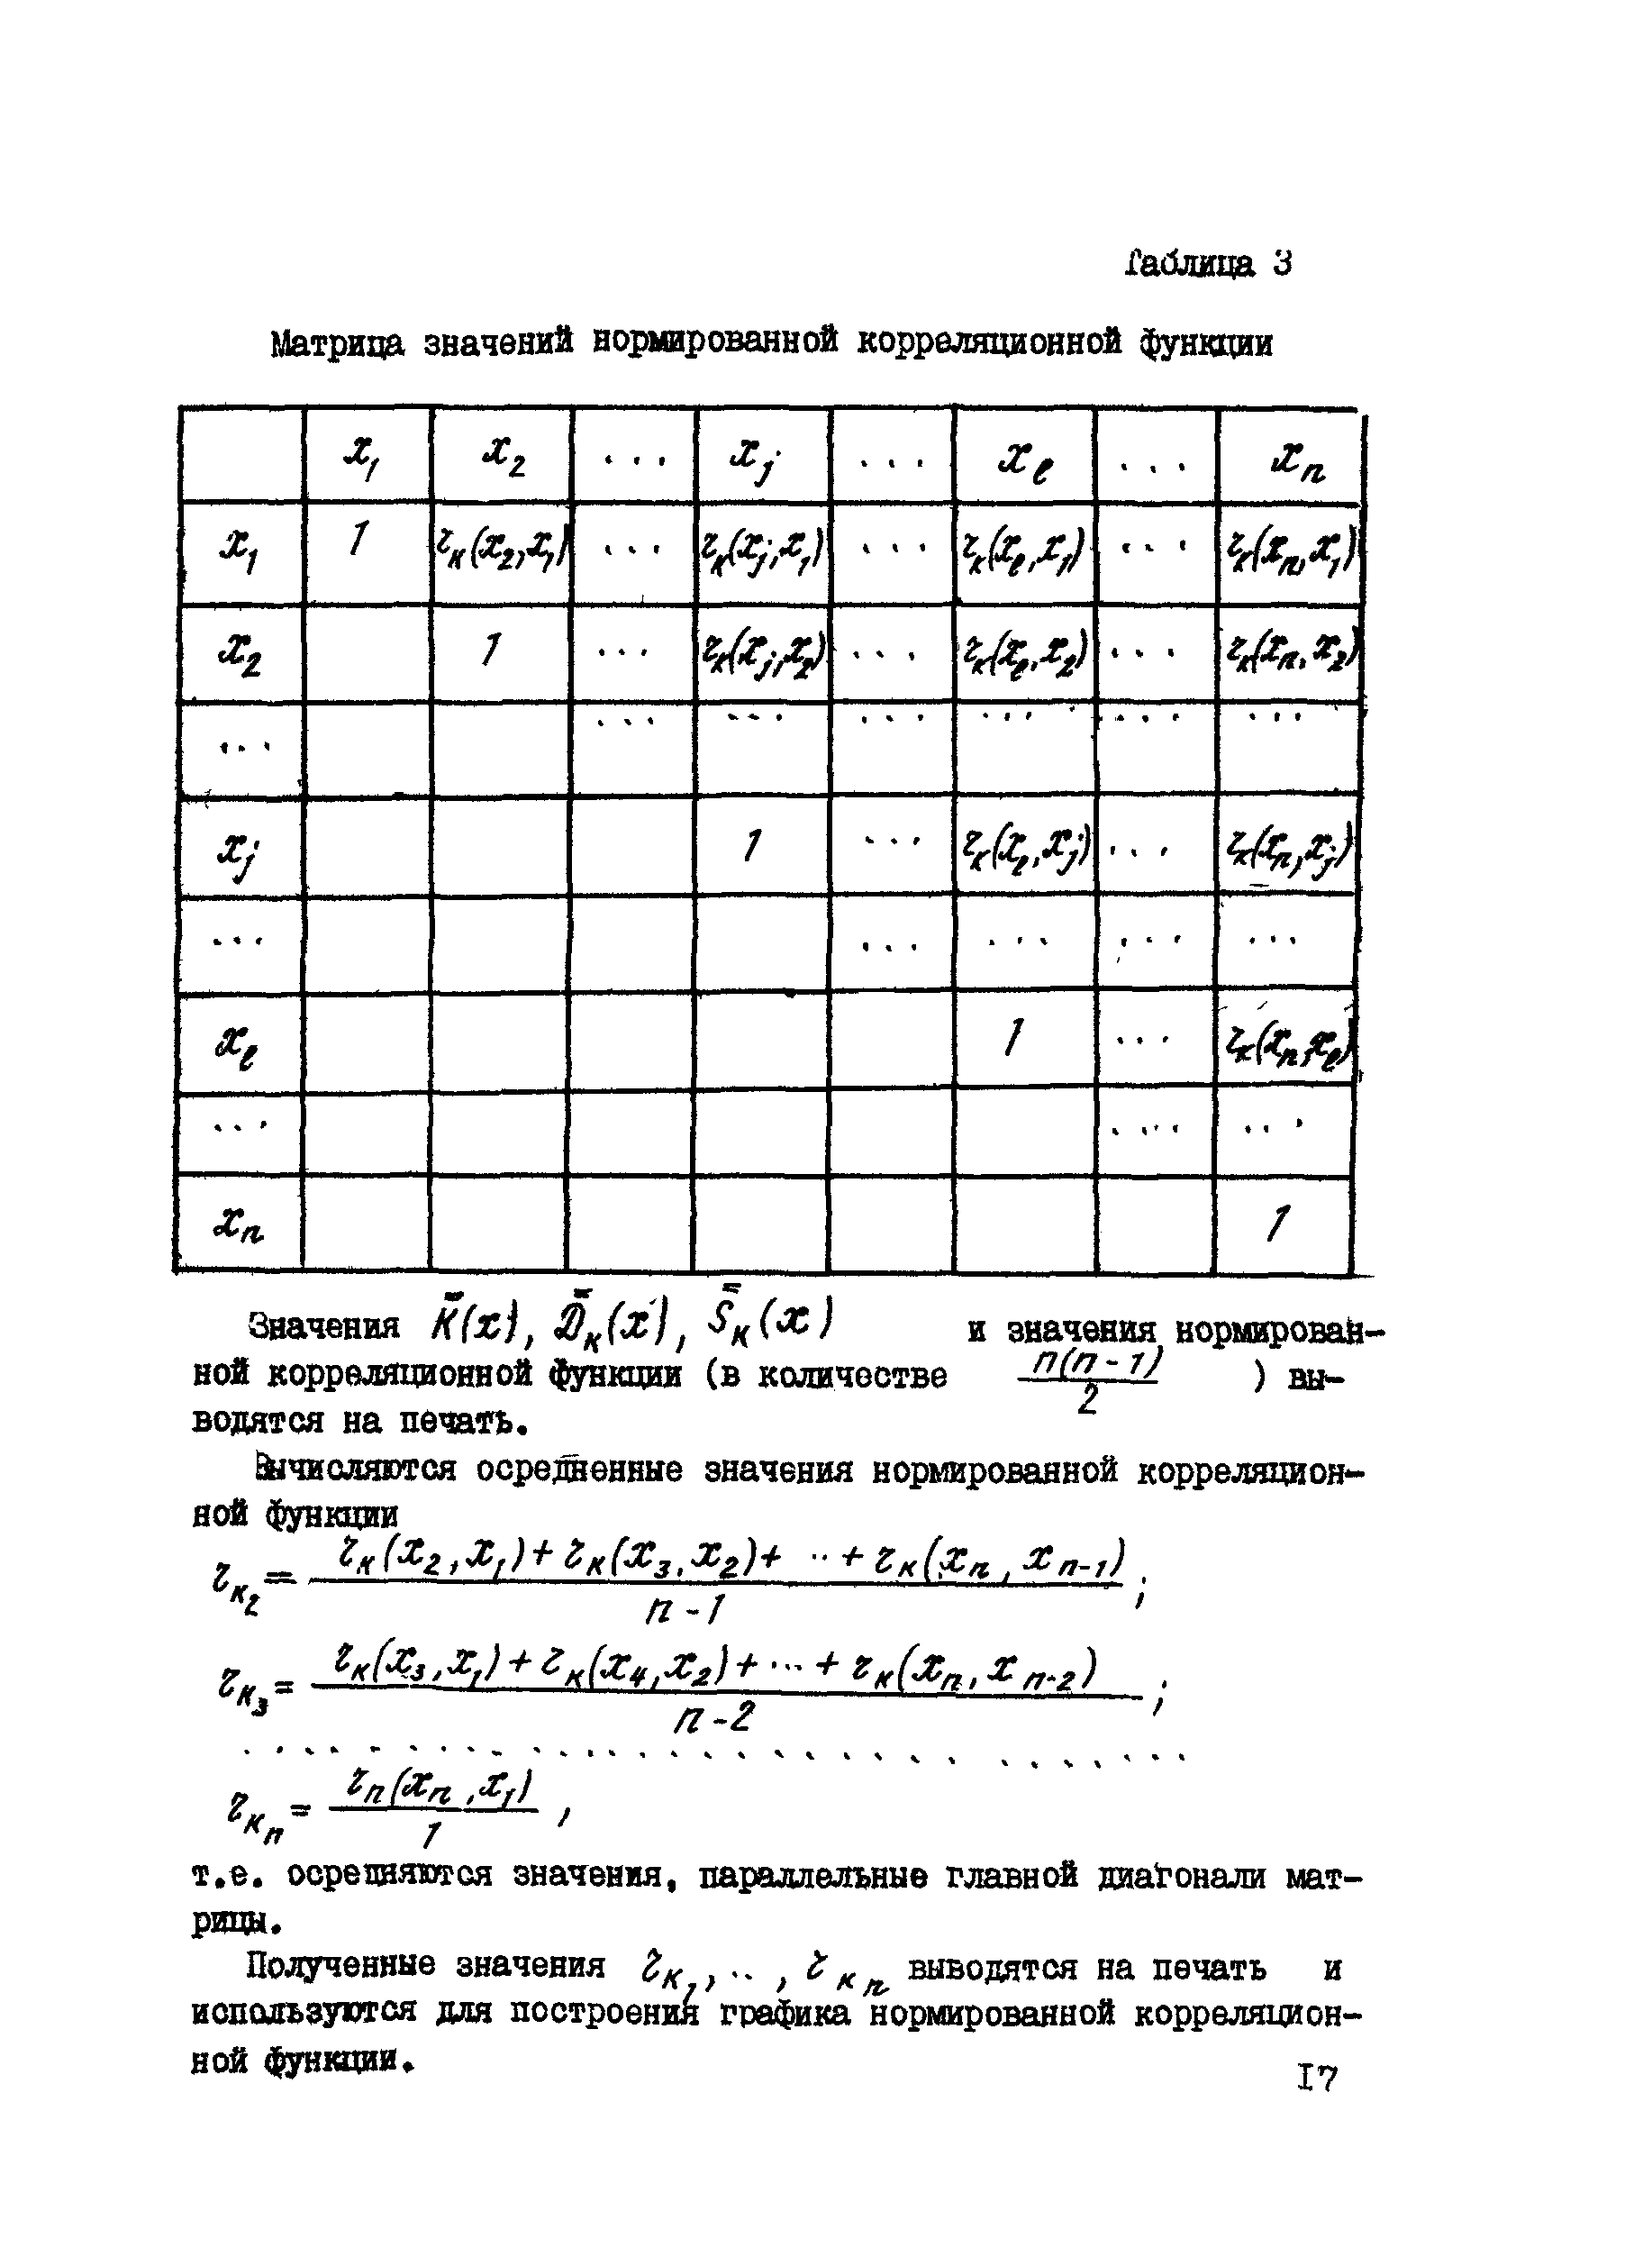 Таблица 3
Матрица значений нормированной корреляционной функции
x₁ x₂ ... xⱼ ... xₗ ... xₙ
x₁ 1 τₖ(x₂,x₁) ... τₖ(xⱼ,x₁) ... τₖ(xₗ,x₁) ... τₖ(xₙ,x₁)
x₂ 1 ... τₖ(xⱼ,x₂) ... τₖ(xₗ,x₂) ... τₖ(xₙ,x₂)
... ... ... ... ... ... ...
xⱼ 1 ... τₖ(xₗ,xⱼ) ... τₖ(xₙ,xⱼ)
... ... ... ... ...
xₗ 1 ... τₖ(xₙ,xₗ)
... ... ...
xₙ 1
Значения K̿(x), D̿ₖ(x), S̿ₖ(x) и значения нормирован-
ной корреляционной функции (в количестве n(n-1)/2 ) вы-
водятся на печать.
Вычисляются осредненные значения нормированной корреляцион-
ной функции
τₖ₂ = (τₖ(x₂,x₁)+τₖ(x₃,x₂)+ ··+τₖ(xₙ,xₙ₋₁))/(n-1) ;
τₖ₃ = (τₖ(x₃,x₁)+τₖ(x₄,x₂)+···+τₖ(xₙ,xₙ₋₂))/(n-2) ;
. . . . . . . . . . . . . . . . . . . . . . . . . . . . . .
τₖₙ = τₙ(xₙ,x₁)/1 ,
т.е. осредняются значения, параллельные главной диагонали мат-
рицы.
Полученные значения τₖ₁, .. , τₖₙ выводятся на печать и
используются для построения графика нормированной корреляцион-
ной функции.
I7